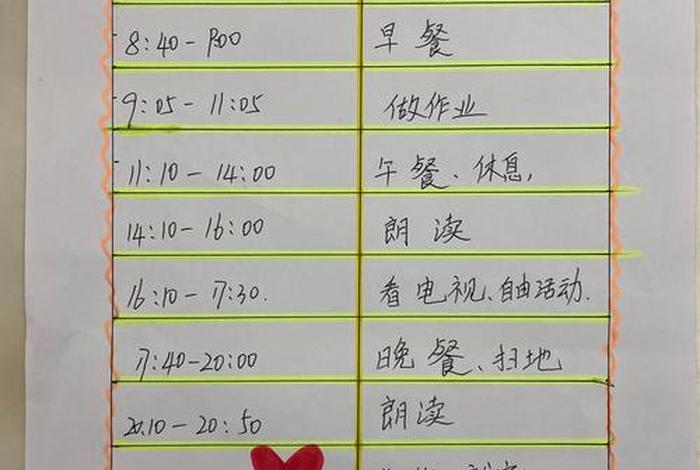 8:40-9:00 早餐
9:05-11:05 做作业
11:10-14:00 午餐、休息,
14:10-16:00 朗读
16:10-17:30. 看电视、自由活动.
17:40-20:00 晚餐、扫地
20:10-20:50 朗读